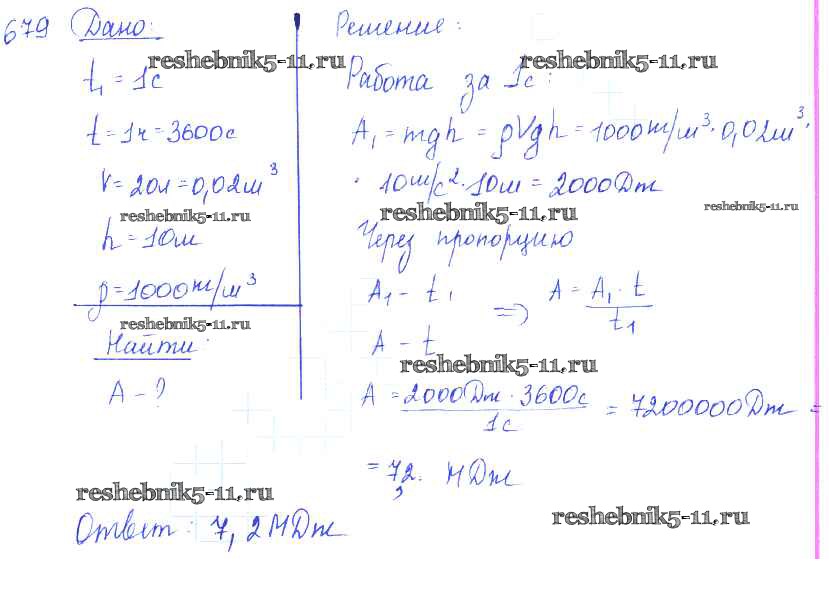 679 Дано:
reshebnik5-11.ru
t₁ = 1с
t = 1ч = 3600с
V = 20л = 0,02м³
reshebnik5-11.ru
h = 10м
ρ = 1000кг/м³
reshebnik5-11.ru
Найти:
A - ?
Решение:
reshebnik5-11.ru
Работа за 1с:
A₁ = mgh = ρVgh = 1000кг/м³ · 0,02м³ ·
· 10м/с² · 10м = 2000Дж
reshebnik5-11.ru
reshebnik5-11.ru
Через пропорцию
A₁ - t₁
A - t
=> A = A₁ · t / t₁
reshebnik5-11.ru
A = 2000Дж · 3600с / 1с = 7200000Дж =
= 7,2 МДж
reshebnik5-11.ru
reshebnik5-11.ru
Ответ: 7,2МДж